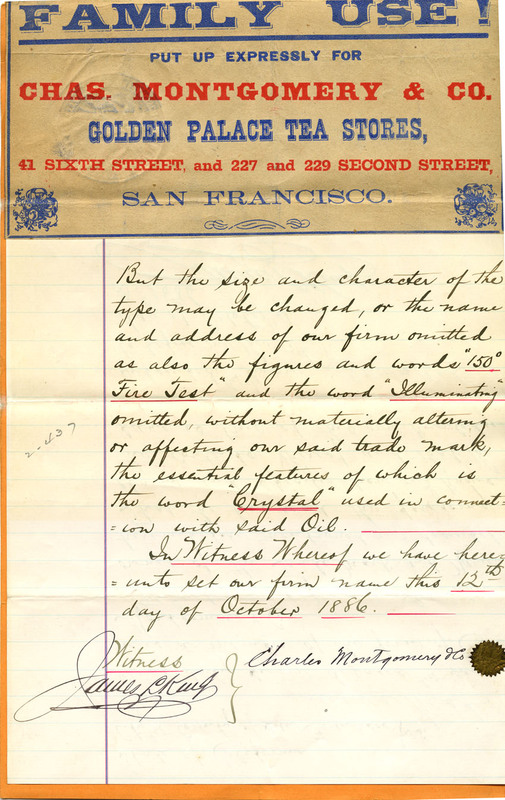 FAMILY USE!
PUT UP EXPRESSLY FOR
CHAS. MONTGOMERY & CO.
GOLDEN PALACE TEA STORES,
41 SIXTH STREET, and 227 and 229 SECOND STREET,
SAN FRANCISCO.
But the size and character of the
type may be changed, or the name
and address of our firm omitted
as also the figures and words "150°
Fire Test" and the word "Illuminating"
omitted, without materially altering
or affecting our said trade mark,
the essential features of which is
the word "Crystal" used in connect-
=ion with said Oil.
In Witness Whereof we have here
=unto set our firm name this 12th
day of October 1886.
Witness
James C King
Charles Montgomery & Co
2-437